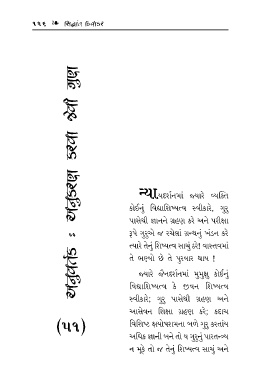 ૧૨૧ ❧ સિદ્ધાંત દિવાકર
અનુવર્તક : અનુકરણ કરવા જેવી ગુણ
(૫૧)
ન્યાયદર્શનમાં જ્યારે વ્યક્તિ
કોઈનું વિદ્યાશિષ્યત્વ સ્વીકારે, ગુરુ
પાસેથી જ્ઞાનને ગ્રહણ કરે અને પરીક્ષા
રૂપે ગુરુએ જ રચેલાં ગ્રન્થનું ખંડન કરે
ત્યારે તેનું શિષ્યત્વ સાચું ઠરે! વાસ્તવમાં
તે ભણ્યો છે તે પુરવાર થાય !
જ્યારે જૈનદર્શનમાં મુમુક્ષુ કોઈનું
વિદ્યાશિષ્યત્વ કે જીવન શિષ્યત્વ
સ્વીકારે; ગુરુ પાસેથી ગ્રહણ અને
આસેવન શિક્ષા ગ્રહણ કરે; કદાચ
વિશિષ્ટ ક્ષયોપશમના બળે ગુરુ કરતાંય
અધિક જ્ઞાની બને તો ય ગુરુનું પારતન્ત્ર્ય
ન મૂકે તો જ તેનું શિષ્યત્વ સાચું અને